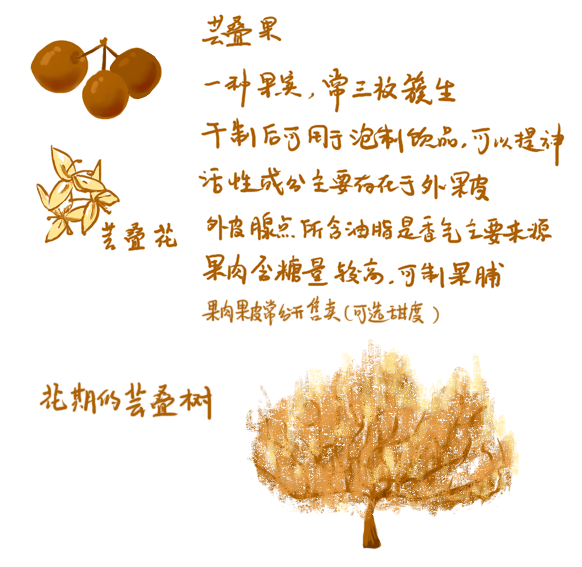 芸叠果
一种果实，常三枚簇生
干制后可用于泡制饮品，可以提神
活性成分主要存在于外果皮
芸叠花
外皮腺点所含油脂是香气主要来源
果肉含糖量较高，可制果脯
果肉果皮常分开售卖（可选甜度）
花期的芸叠树